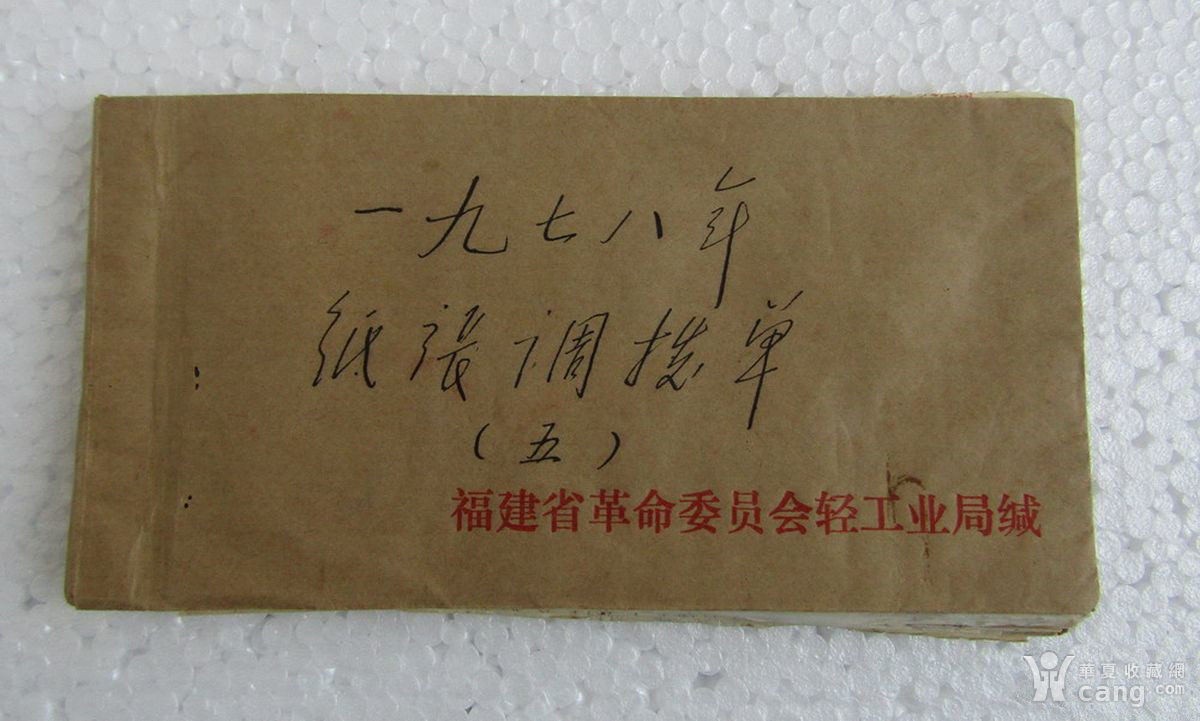 一九七八年
纸张调拨单
（五）
福建省革命委员会轻工业局缄
華夏收藏網
cang.com